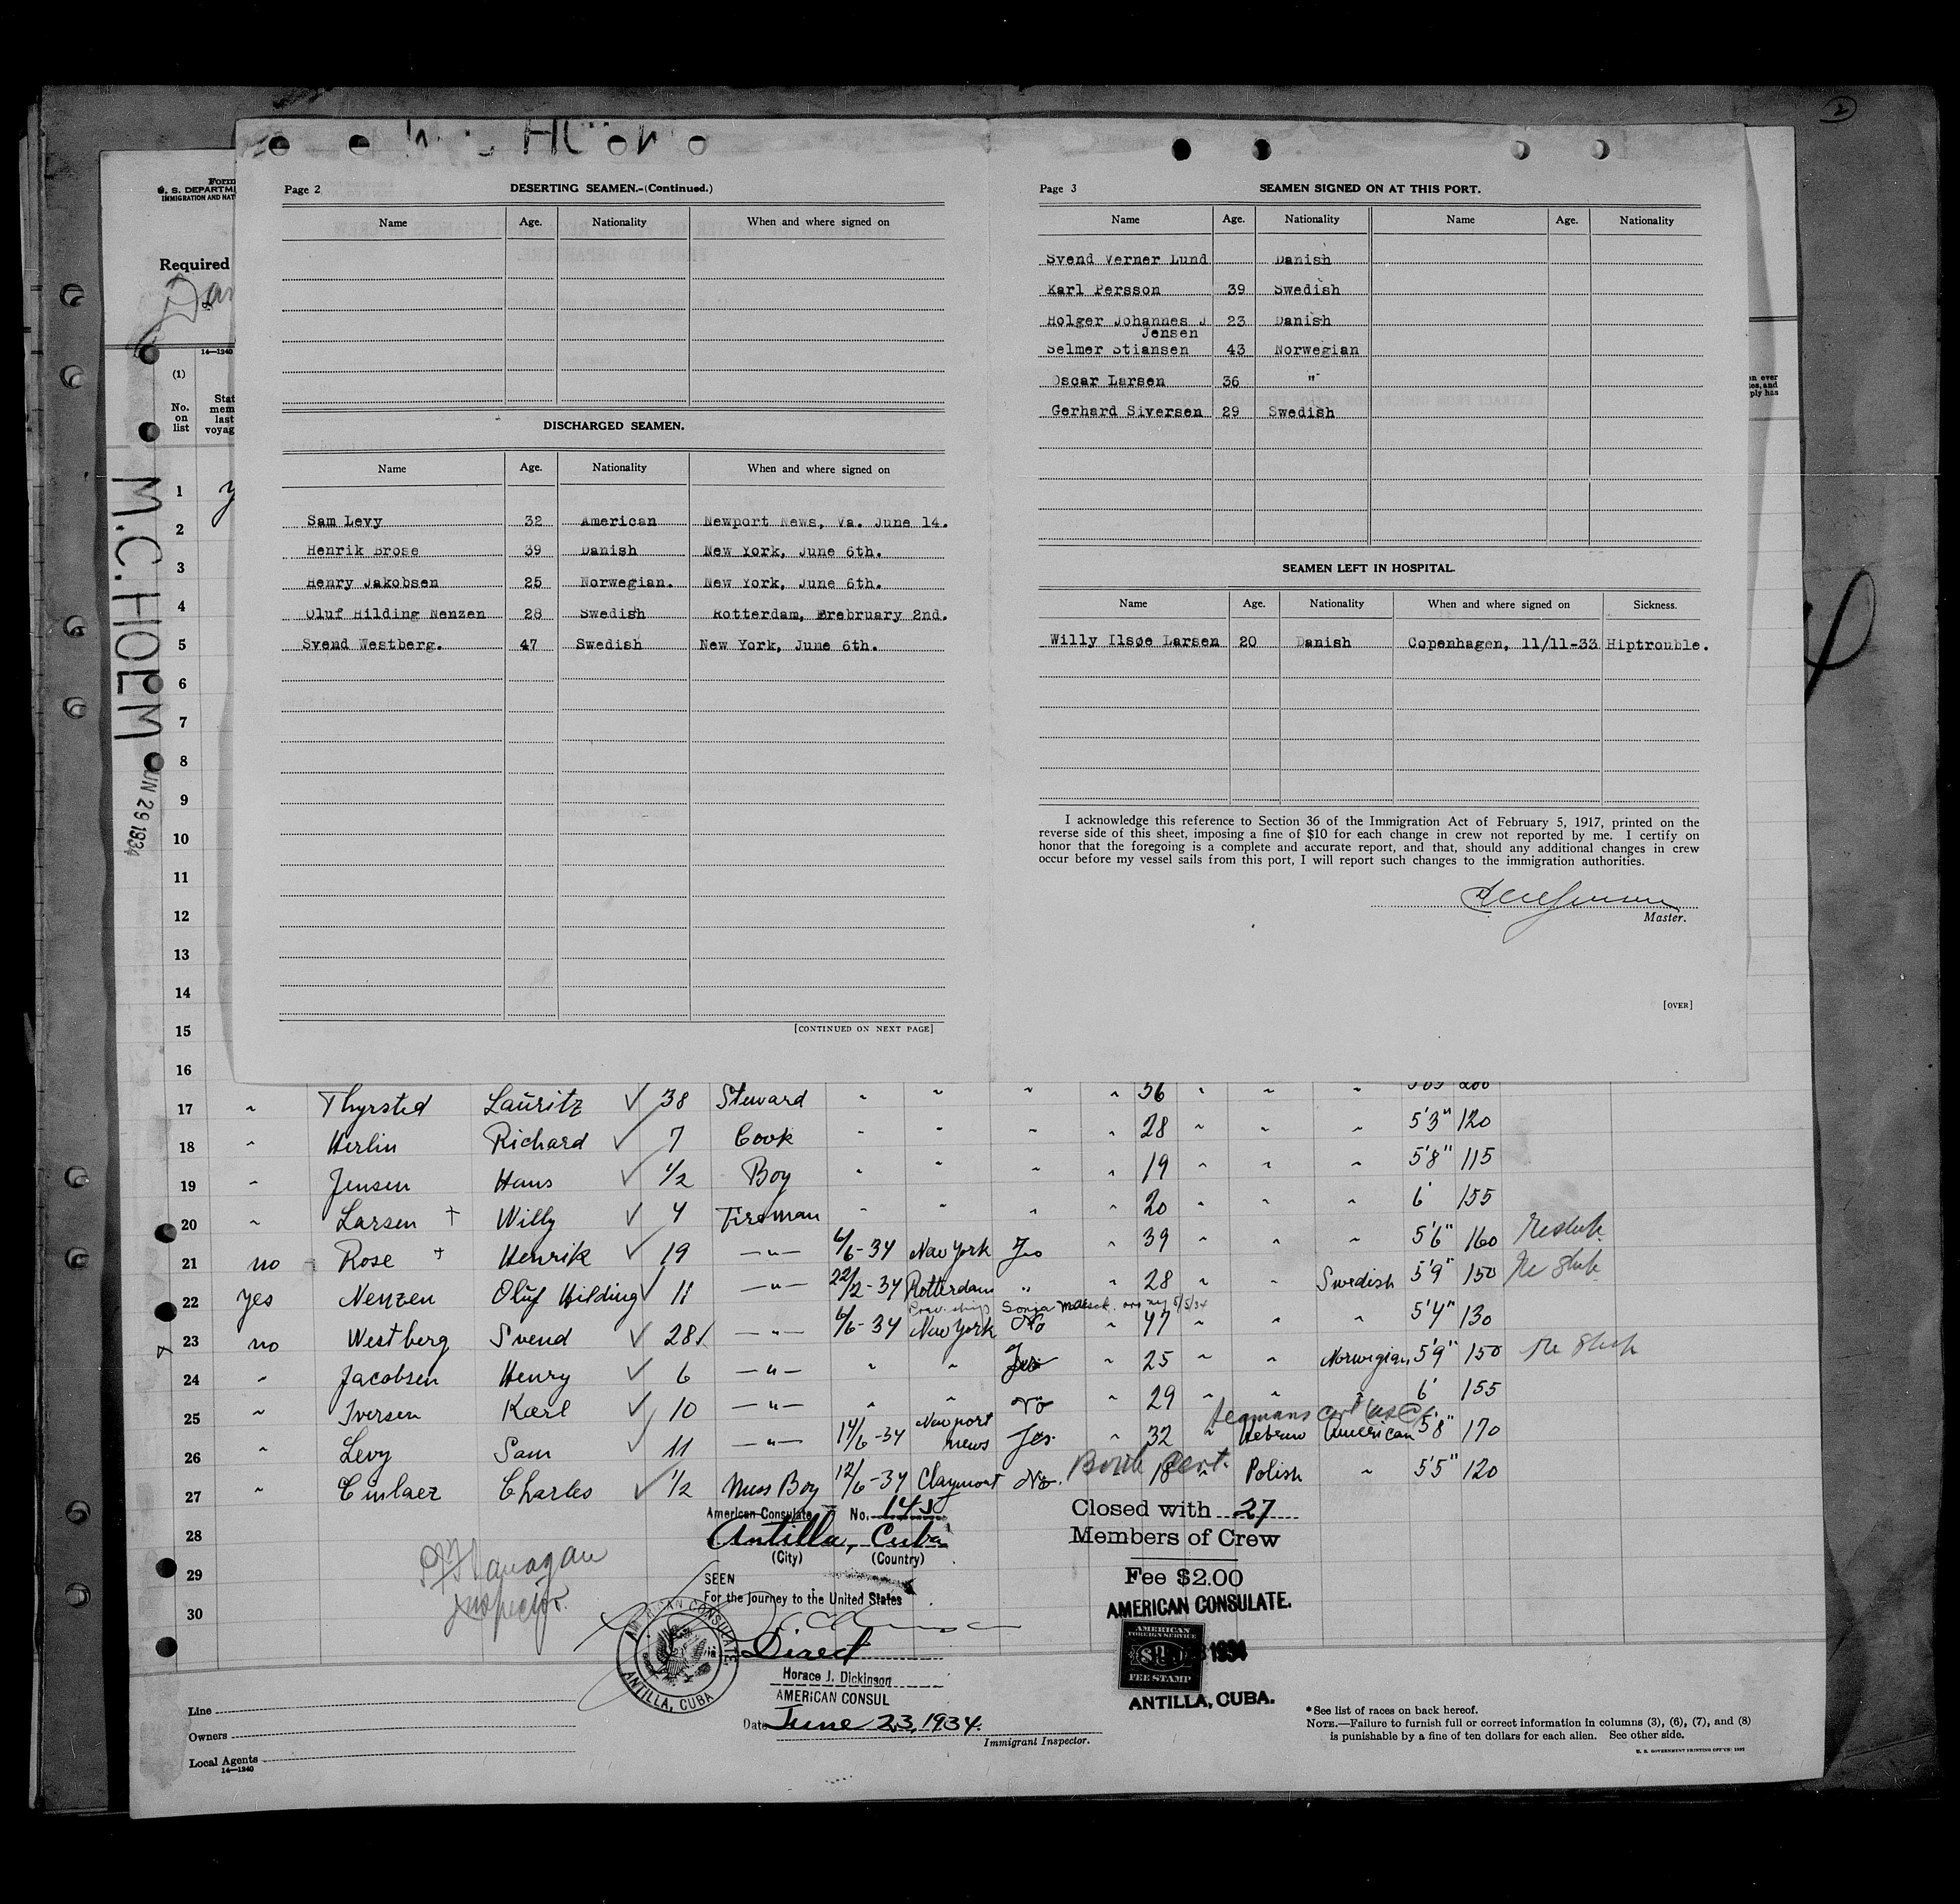 2
Form
U. S. DEPARTM
IMMIGRATION AND NAT
Required
14—1240
(1)
No. on list
Stat
mem
last
voyag
M.C. HOLM
JUN 29 1934
Page 2 DESERTING SEAMEN.-(Continued.)
Name Age. Nationality When and where signed on
DISCHARGED SEAMEN.
Name Age. Nationality When and where signed on
Sam Levy 32 American Newport News, Va. June 14.
Henrik Brose 39 Danish New York, June 6th.
Henry Jakobsen 25 Norwegian. New York, June 6th.
Oluf Hilding Nenzen 28 Swedish Rotterdam, Erebruary 2nd.
Svend Westberg. 47 Swedish New York, June 6th.
[CONTINUED ON NEXT PAGE]
Page 3 SEAMEN SIGNED ON AT THIS PORT.
Name Age. Nationality Name Age. Nationality
Svend Verner Lund Danish
Karl Persson 39 Swedish
Holger Johannes J 23 Danish
Jensen
Selmer Stiansen 43 Norwegian
Oscar Larsen 36 "
Gerhard Siversen 29 Swedish
SEAMEN LEFT IN HOSPITAL.
Name Age. Nationality When and where signed on Sickness.
Willy Ilsøe Larsen 20 Danish Copenhagen, 11/11-33 Hiptrouble.
I acknowledge this reference to Section 36 of the Immigration Act of February 5, 1917, printed on the
reverse side of this sheet, imposing a fine of $10 for each change in crew not reported by me. I certify on
honor that the foregoing is a complete and accurate report, and that, should any additional changes in crew
occur before my vessel sails from this port, I will report such changes to the immigration authorities.
Master.
[OVER]
n ever
ies, and
ply has
1
2
3
4
5
6
7
8
9
10
11
12
13
14
15
16
17 " Thyrsted Lauritz ✓ 38 Steward " " " " 56 " " "
18 " Herlin Richard ✓ 7 Cook " " " " 28 " " " 5'3" 120
19 " Jensen Hans ✓ 1/2 Boy " " " " 19 " " " 5'8" 115
20 " Larsen † Willy ✓ 4 Fireman " " " " 20 " " " 6' 155
21 no Rose † Henrik ✓ 19 —"— 6/6-34 New York Yes " 39 " " " 5'6" 160
22 yes Nenzen Oluf Hilding ✓ 11 —"— 22/2-34 Rotterdam " " 28 " " Swedish 5'9" 150
Prev. ship Sonja Maersk
23 no Westberg Svend ✓ 28 —"— 6/6-34 New York No " 47 " " " 5'4" 130
24 " Jacobsen Henry ✓ 6 —"— " " Yes " 25 " " Norwegian 5'9" 150
25 " Iversen Karl ✓ 10 —"— " " No " 29 " " " 6' 155
Seamans cert
26 " Levy Sam ✓ 11 —"— 14/6-34 Newport News Yes. " 32 " Hebrew American 5'8" 170
Birth Cert.
27 " Charles ✓ 1/2 Mess Boy 12/6-34 Claymont No. 18 " Polish " 5'5" 120
28
29
30
Flanagan
Inspector.
American Consulate No. 145
Antilla, Cuba
(City) (Country)
SEEN
For the journey to the United States
via Direct
Horace J. Dickinson
AMERICAN CONSUL
Date June 23, 1934.
Immigrant Inspector.
AMERICAN CONSULATE
ANTILLA, CUBA
Closed with 27
Members of Crew
Fee $2.00
AMERICAN CONSULATE.
AMERICAN
FOREIGN SERVICE
FEE STAMP
1934
ANTILLA, CUBA.
Line
Owners
Local Agents
14—1240
*See list of races on back hereof.
NOTE.—Failure to furnish full or correct information in columns (3), (6), (7), and (8)
is punishable by a fine of ten dollars for each alien. See other side.
U. S. GOVERNMENT PRINTING OFFICE: 1932